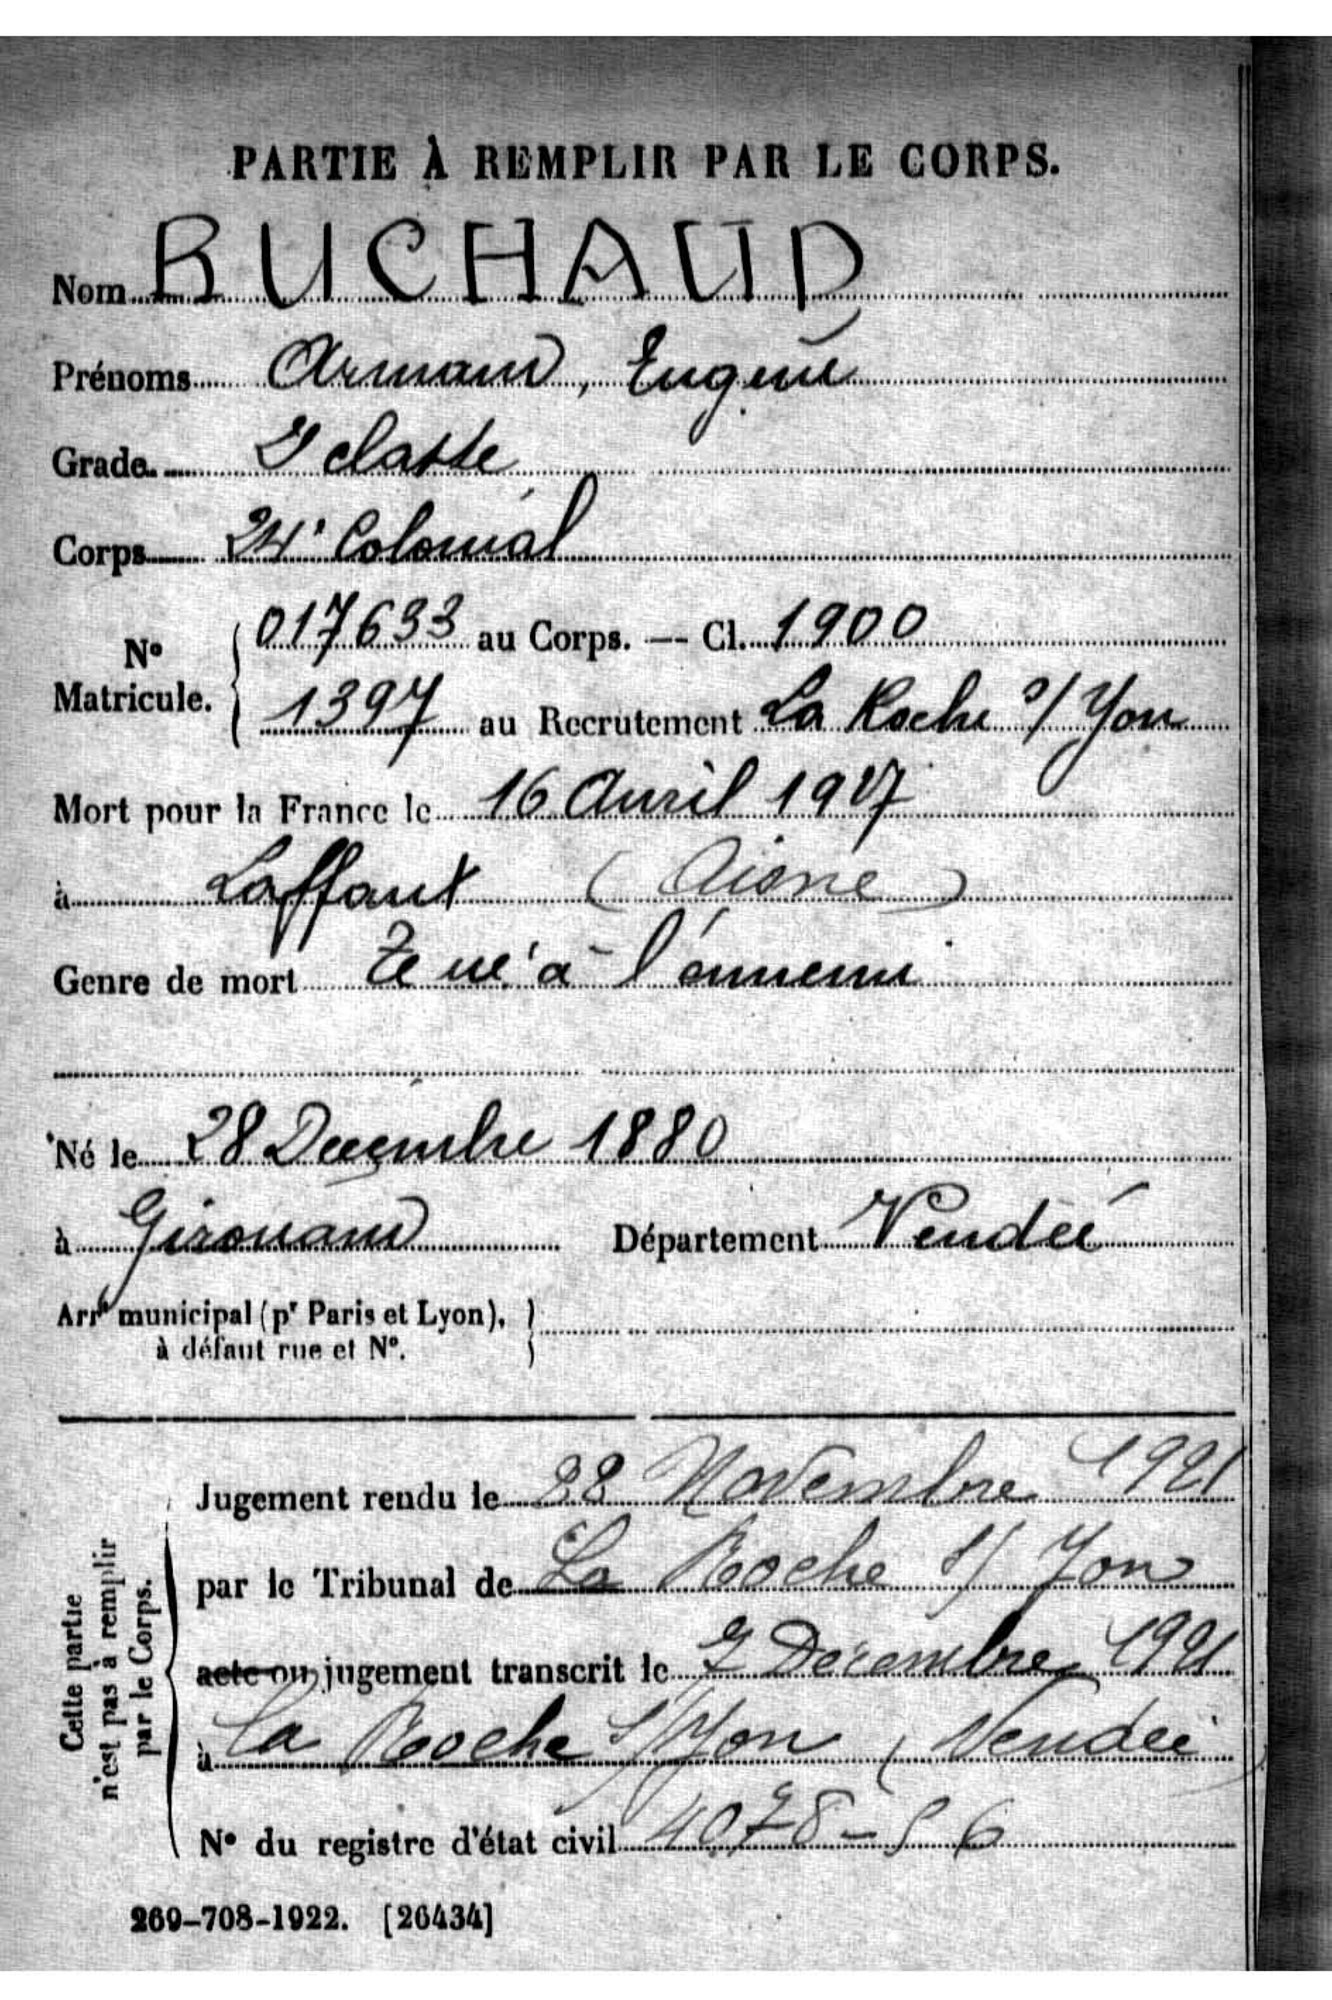 PARTIE À REMPLIR PAR LE CORPS.
Nom RUCHAUD
Prénoms Armand, Eugène
Grade 2e classe
Corps 24e Colonial
No Matricule. 017633 au Corps. — Cl. 1900
1397 au Recrutement La Roche s/ Yon
Mort pour la France le 16 Avril 1917
à Laffaux (Aisne)
Genre de mort Tué à l'ennemi
Né le 28 Décembre 1880
à Girouard Département Vendée
Arrt municipal (pr Paris et Lyon),
à défaut rue et No.
Cette partie
n'est pas à remplir
par le Corps.
Jugement rendu le 22 Novembre 1921
par le Tribunal de La Roche s/ Yon
acte ou jugement transcrit le 7 Décembre 1921
à La Roche s/Yon (Vendée
No du registre d'état civil 4078-56
269-708-1922. [26434]